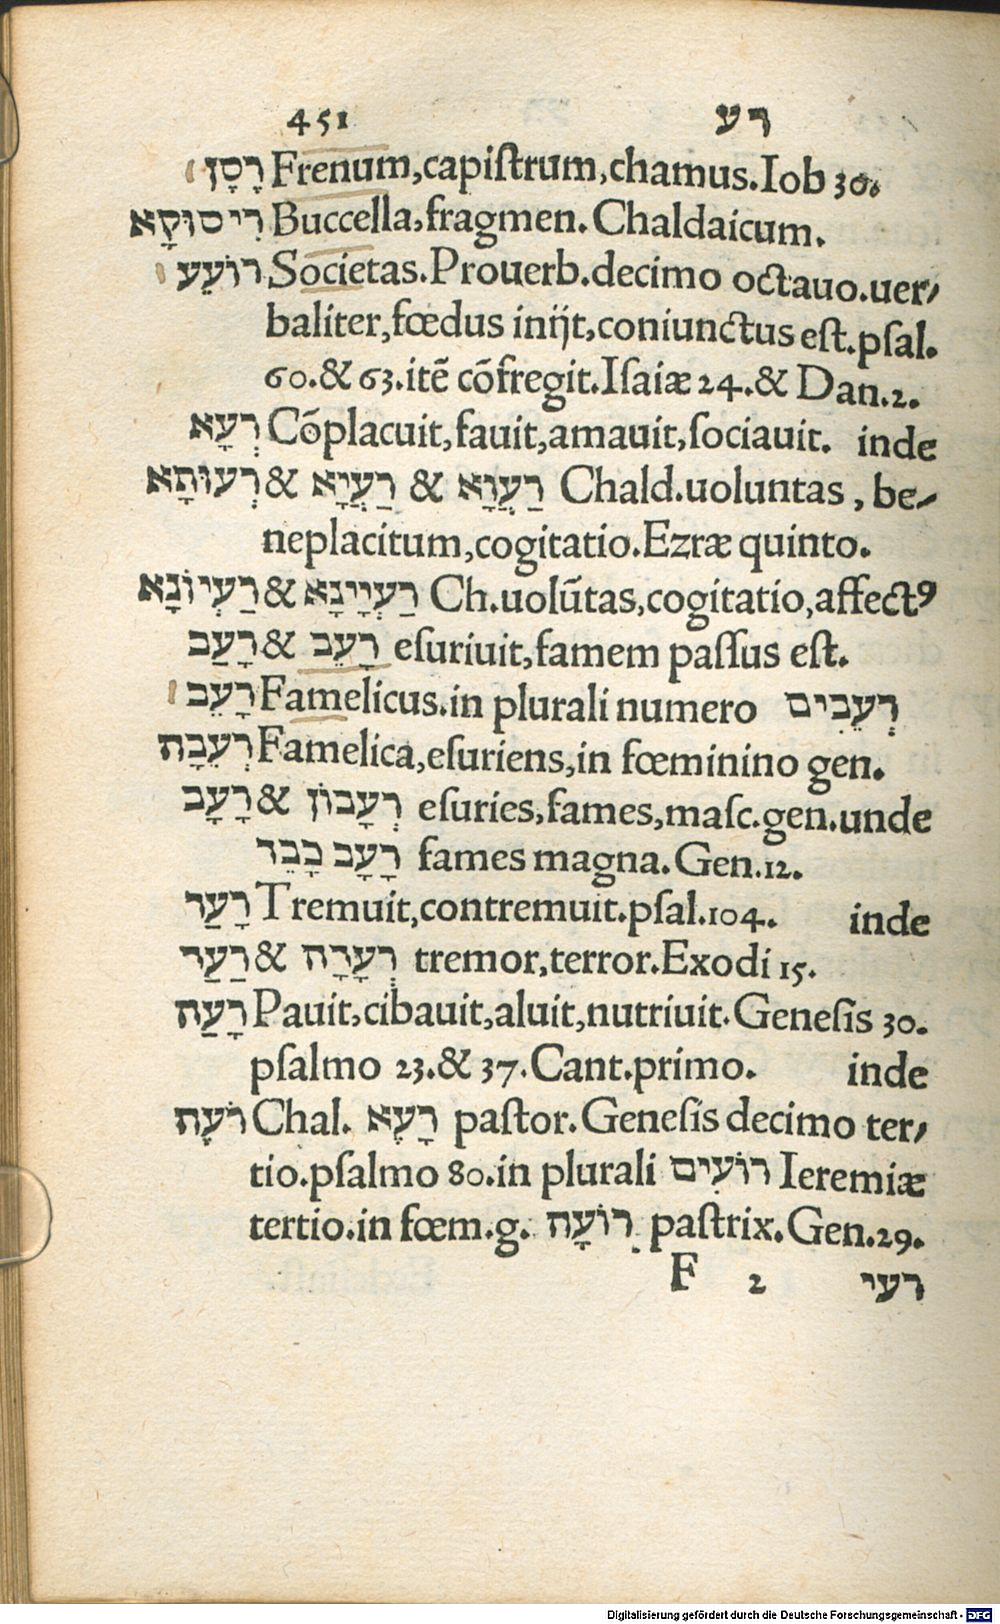 451 רע
רָסָן Frenum,capiſtrum,chamus.Iob 30.
רִיסוּקָא Buccella,fragmen. Chaldaicum.
רוֹעֵע Societas.Prouerb.decimo octauo.uer/
baliter,fœdus inijt,coniunctus eſt.pſal.
60.& 63.itē cōfregit.Iſaiæ 24.& Dan.2.
רְעָא Cōplacuit,fauit,amauit,ſociauit. inde
רְעוּתָא & רַעֲיָא & רַעֲוָא Chald.uoluntas, be/
neplacitum,cogitatio.Ezræ quinto.
רַעְיוֹנָא & רַעְיָינָא Ch.uolūtas,cogitatio,affectꝯ
רָעַב & רָעֵב eſuriuit,famem paſſus eſt.
רָעֵב Famelicus.in plurali numero רְעֵבִים
רְעֵבָה Famelica,eſuriens,in fœminino gen.
רָעָב & רְעָבוֹן eſuries,fames,maſc.gen.unde
רָעָב כָּבֵד fames magna.Gen.12.
רָעַד Tremuit,contremuit.pſal.104. inde
רַעַד & רְעָדָה tremor,terror.Exodi 15.
רָעַה Pauit,cibauit,aluit,nutriuit.Geneſis 30.
pſalmo 23.& 37.Cant.primo. inde
רֹעֶה Chal. רָעֶא paſtor.Geneſis decimo ter/
tio.pſalmo 80.in plurali רוֹעִים Ieremiæ
tertio.in fœm.g. רוֹעָה paſtrix.Gen.29.
F 2 רעי
Digitalisierung gefördert durch die Deutsche Forschungsgemeinschaft - DFG